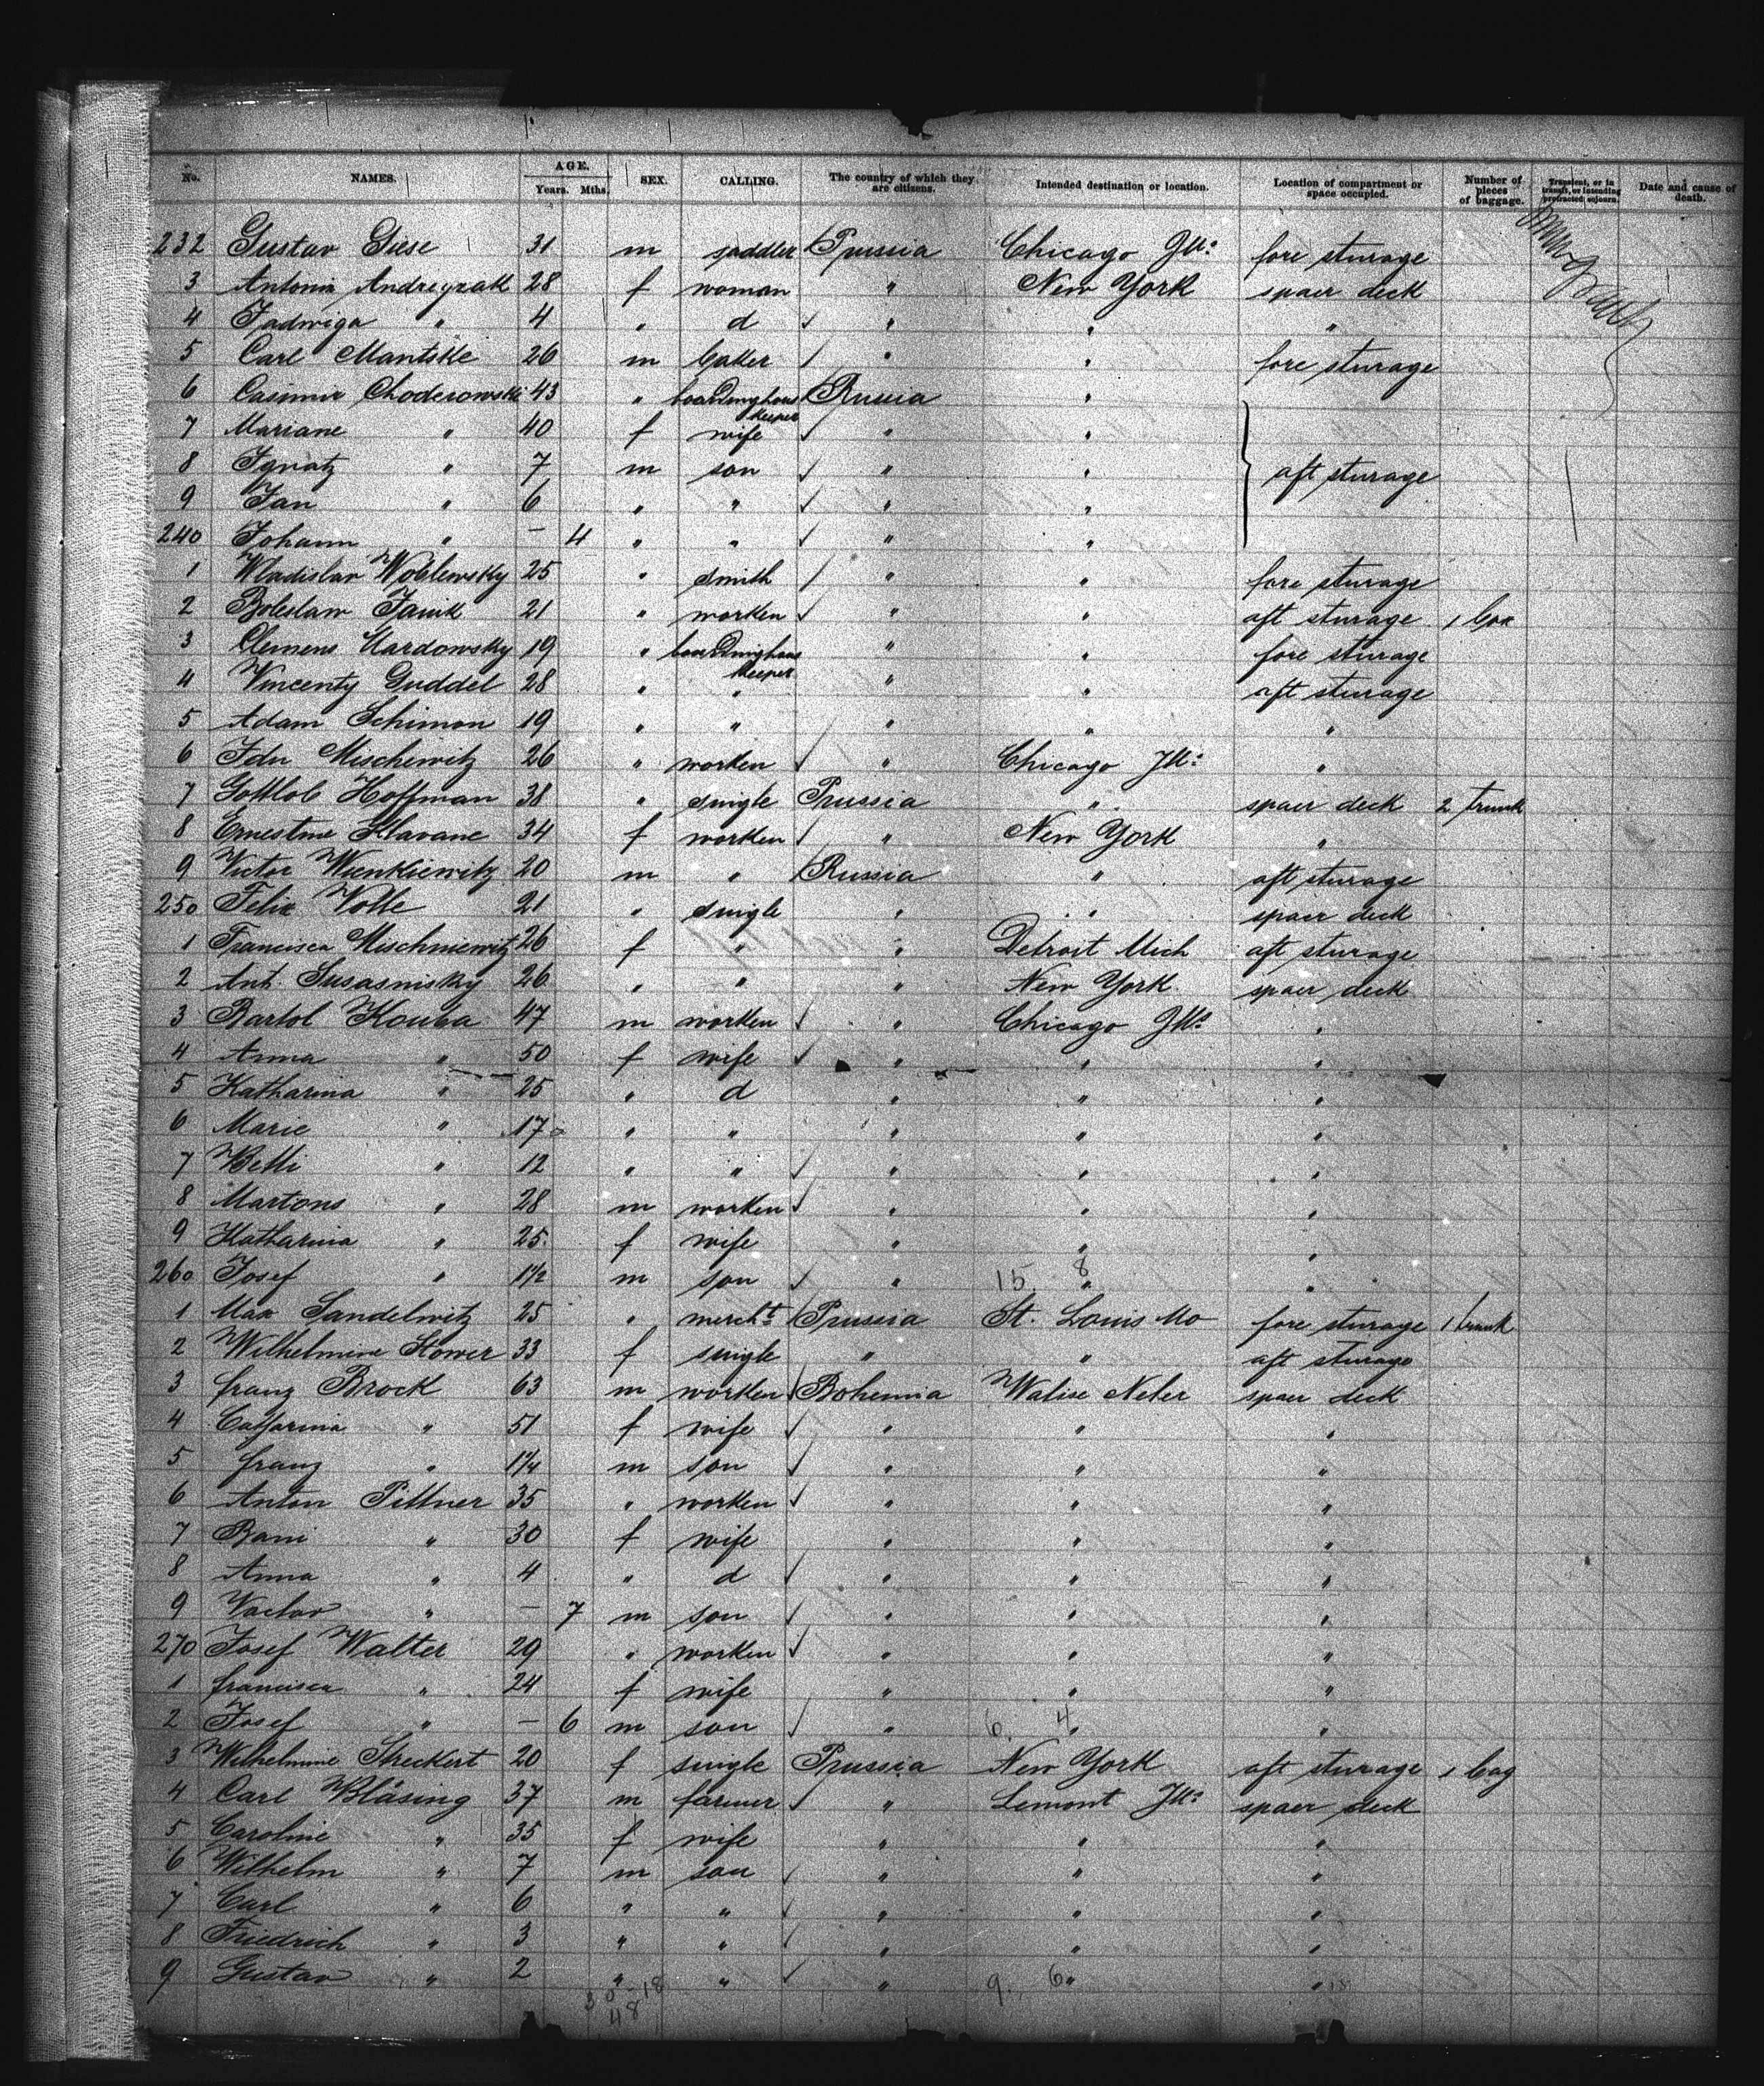 No. NAMES. AGE. Years. Mths. SEX. CALLING. The country of which they are citizens. Intended destination or location. Location of compartment or space occupied. Number of pieces of baggage. Transient, or in transit, or intending protracted sojourn. Date and cause of death.
232 Gustav Giese 31 m saddler Prussia Chicago Ill: fore sturage
3 Antonia Andreyzak 28 f woman " New York spaer deck
4 Jadwiga " 4 " d " " "
5 Carl Mantske 26 m baker " " fore sturage
6 Casimir Choderowski 43 " boardinghous keeper Russia "
7 Mariane " 40 f wife " "
8 Ignatz " 7 m son " " aft sturage
9 Jan " 6 " " " "
240 Johann " — 4 " " " "
1 Wladislav Woblewsky 25 " smith " " fore sturage
2 Boleslaw Janik 21 " worken " " aft sturage 1 box
3 Clemens Mardowsky 19 " boardinghous keeper " " fore sturage
4 Vincenty Guddel 28 " " " " aft sturage
5 Adam Schimon 19 " " " " "
6 Mischewitz 26 " worken " Chicago Ill: "
7 Gottlob Hoffman 38 " single Prussia " spaer deck 2 trunk
8 Ernestine 34 f worken " New York "
9 Victor Wienkiewitz 20 m " Russia " aft sturage
250 Felix Volle 21 " single " " spaer deck
1 Francisca Mischniewitz 26 f " " Detroit Mich aft sturage
2 Ant. Susasnisky 26 " " " New York spaer deck
3 Bartol Kouba 47 m worken " Chicago Ills "
4 Anna " 50 f wife " " "
5 Katharina " 25 " d " " "
6 Marie " 17 " " " " "
7 Betti " 12 " " " " "
8 Martons " 28 m worken " " "
9 Katharina " 25 f wife " " "
260 Josef " 1 1/2 m son " 15 8 " "
1 Max Sandelwitz 25 " mercht Prussia St. Louis Mo fore sturage 1 trunk
2 Wilhelmine Stower 33 f single " " aft sturage
3 franz Brock 63 m worken Bohemia Walise Neber spaer deck
4 Catharina " 51 f wife " " "
5 franz " 1 1/4 m son " " "
6 Anton Pittner 35 " worken " " "
7 Bani " 30 f wife " " "
8 Anna " 4 " d " " "
9 Vaclav " — 7 m son " " "
270 Josef Walter 29 " worken " " "
1 francisca " 24 f wife " " "
2 Josef " — 6 m son " 6 4 " "
3 Wilhelmine Streckert 20 f single Prussia New York aft sturage 1 bag
4 Carl Bläsing 37 m farmer " Lemont Ill: spaer deck
5 Caroline " 35 f wife " " "
6 Wilhelm " 7 m son " " "
7 Carl " 6 " " " " "
8 Friedrich " 3 " " " " "
9 Gustav " 2 " " " 9 6 " "
30 18
48